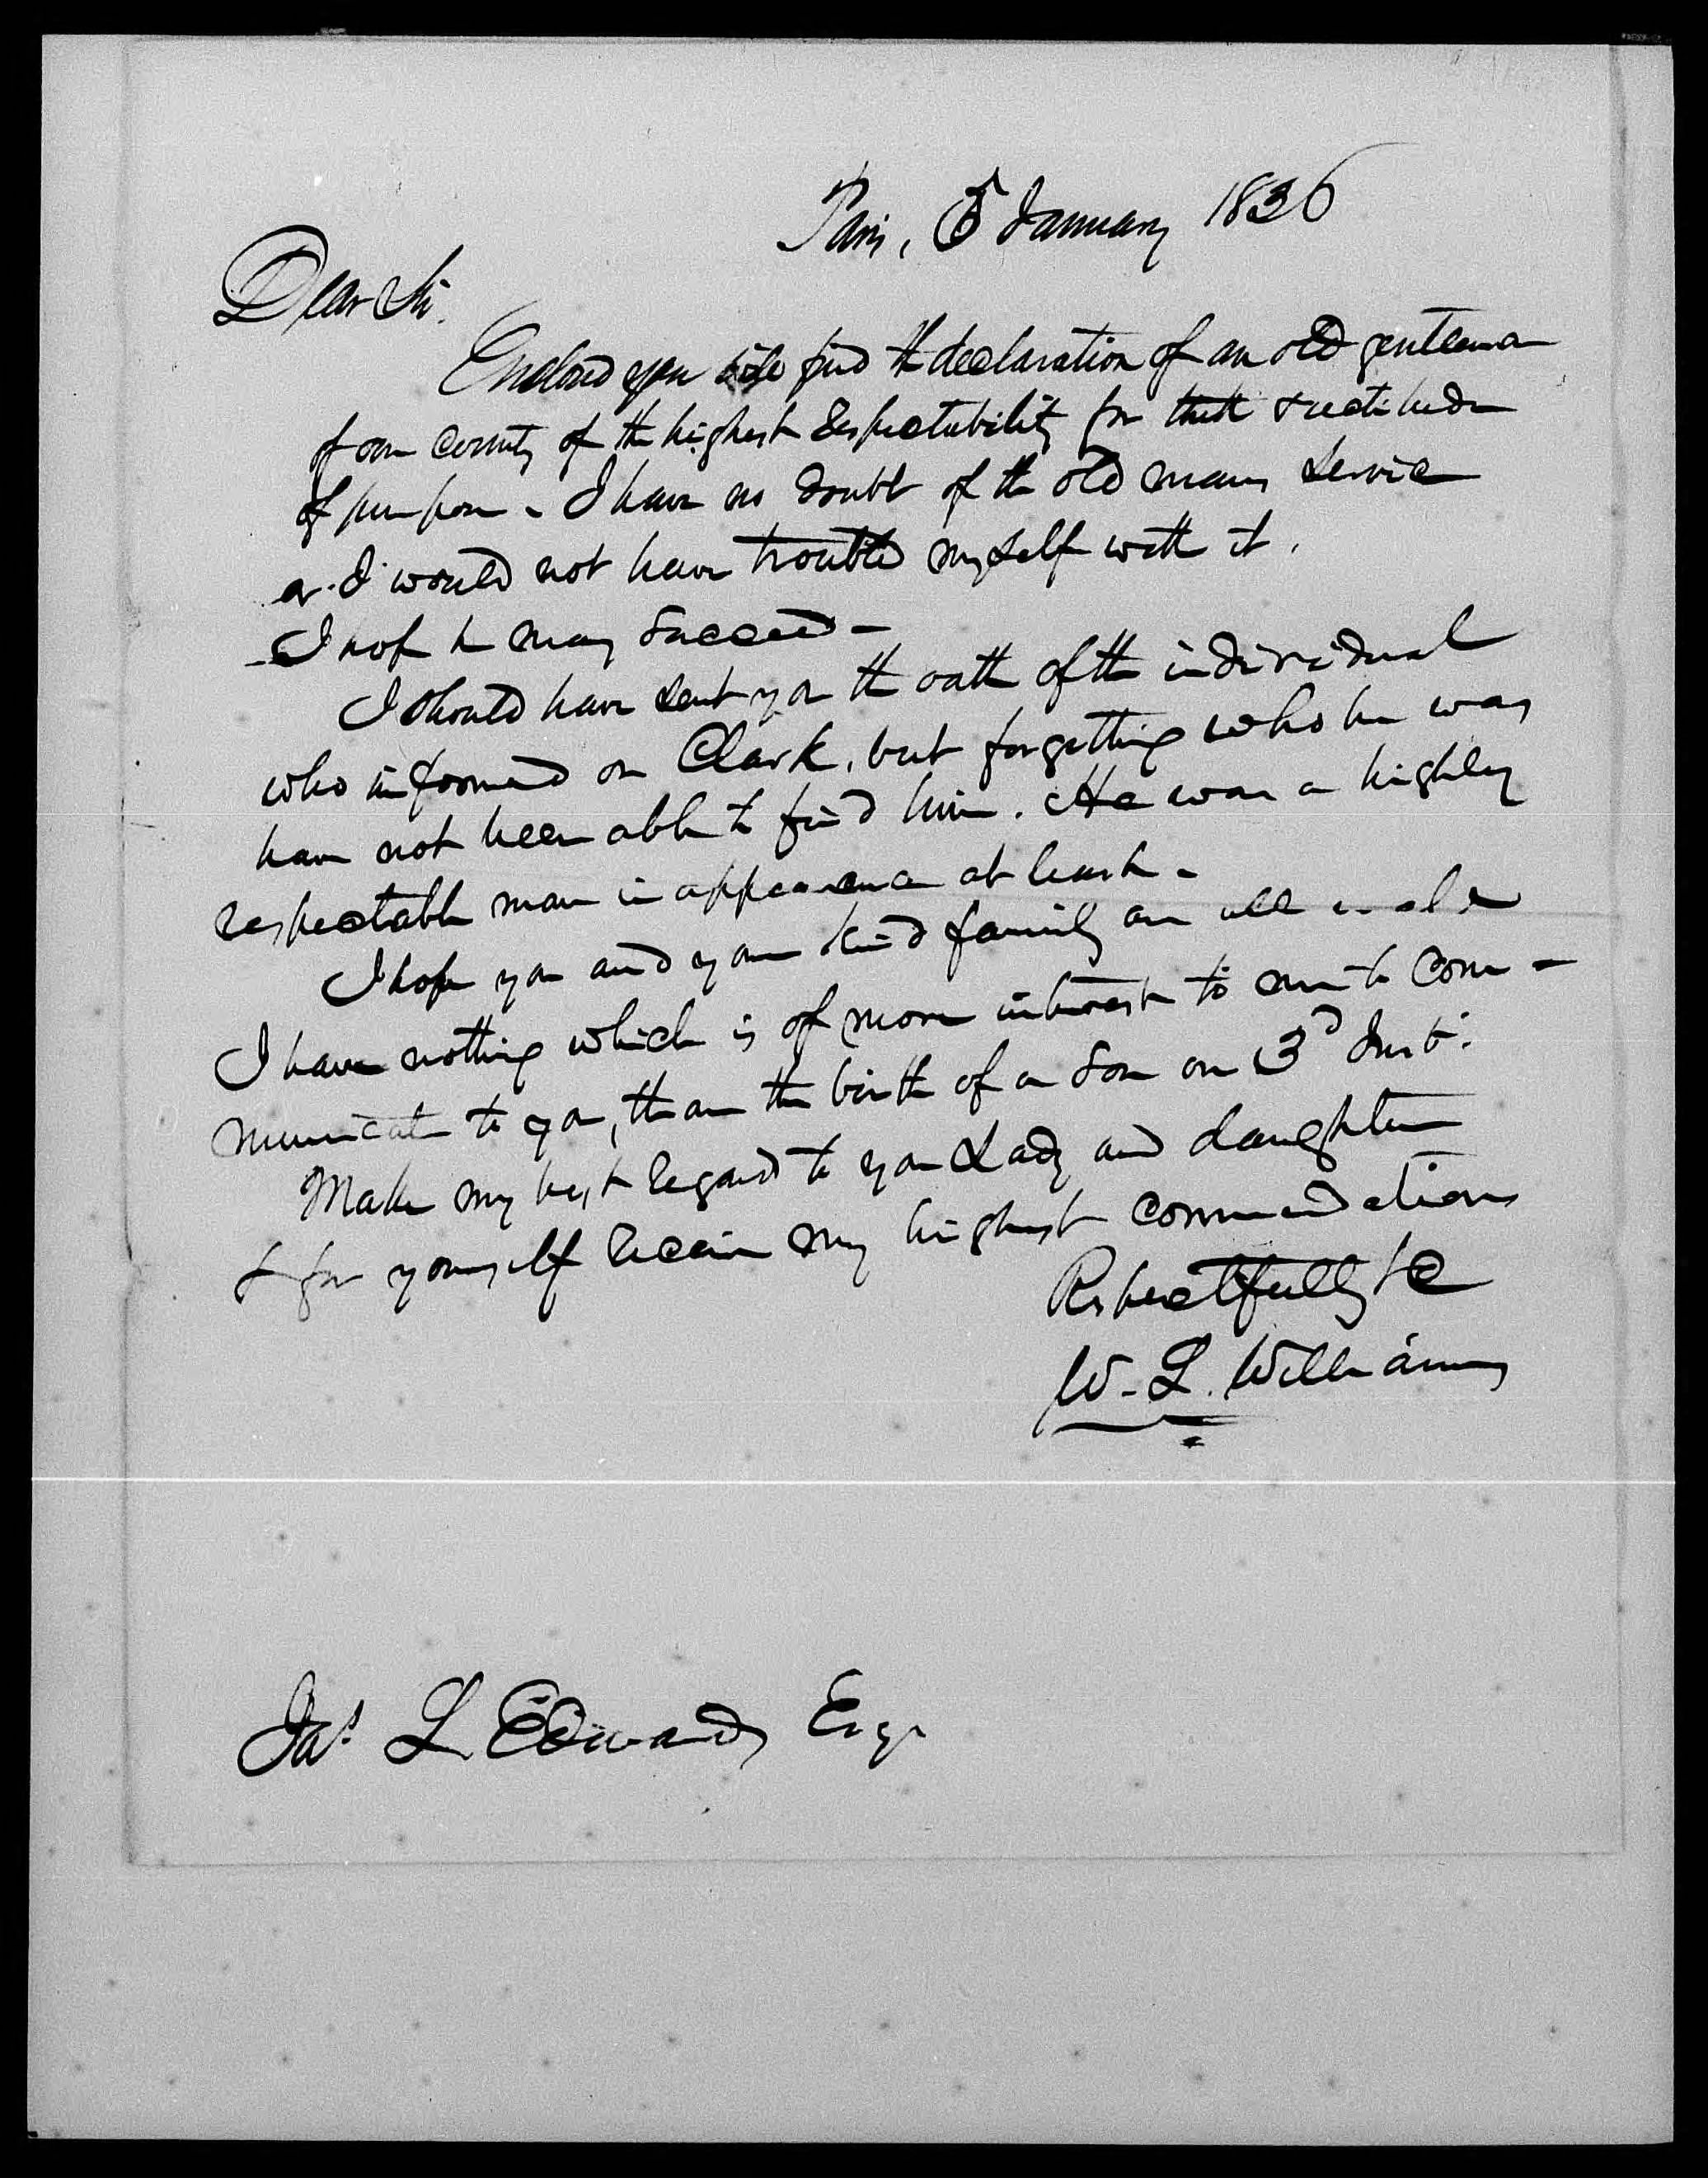 Paris, 5 January 1836
Dear Sir.
Enclosed you will find the declaration of an old gentleman
of our County of the highest respectability for truth & rectitude
of purpose - I have no doubt of the old mans service
or I would not have troubled myself with it.
I hope he may succeed -
I should have sent you the oath of the individual
who informed on Clark, but forgetting who he was
have not been able to find him. He was a highly
respectable man in appearance at least -
I hope you and your kind family are all
I have nothing which is of more interest to me to com -
municate to you, than the birth of a son on 3d Inst.
Make my best regards to your Lady and daughter
& for yourself receive my highest commendations
Respectfully &c
W. L. Williams
Jas L Edwards Esqr